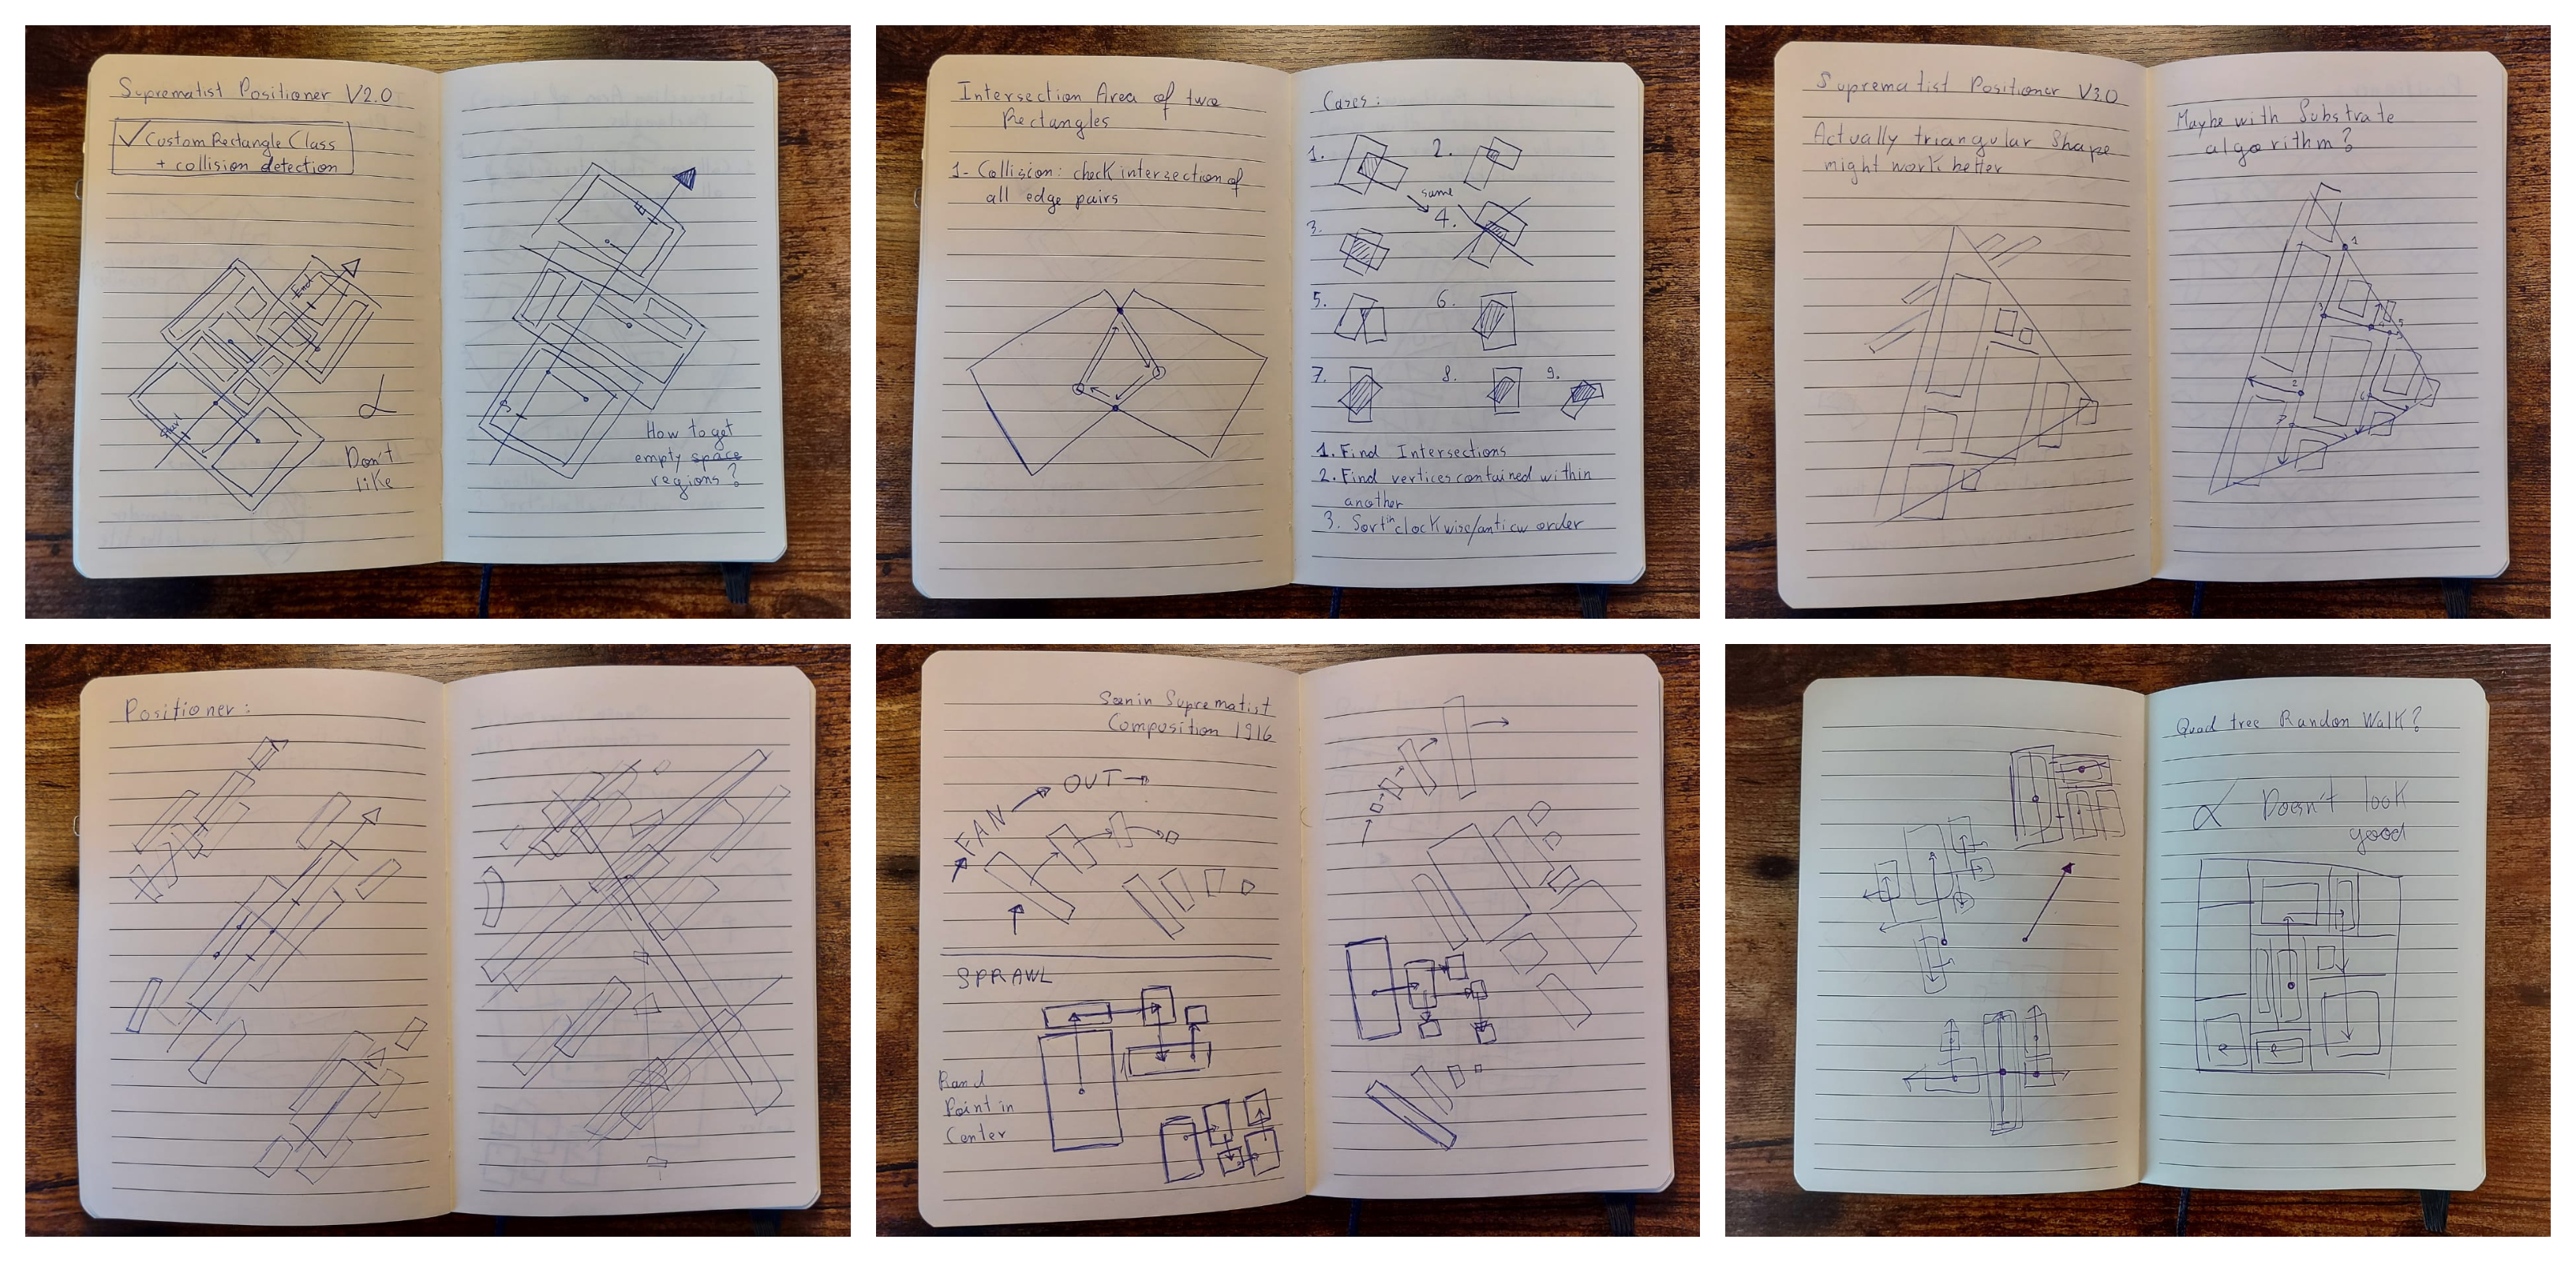 Suprematist Positioner V2.0
✓ Custom Rectangle Class
+ collision detection
End
Start
Don't
like
How to get
empty space
regions?
Intersection Area of two
Rectangles
1- Collision: check intersection of
all edge pairs
Cases:
1.
2.
same
3.
4.
5.
6.
7.
8.
9.
1. Find Intersections
2. Find vertices contained within
another
3. Sort in clockwise/anticw order
Suprematist Positioner V3.0
Actually triangular Shape
might work better
Maybe with Substrate
algorithm?
1
3
5
2
Positioner:
Seen in Suprematist
Composition 1916
FAN
OUT
SPRAWL
Rand
Point in
Center
Quad tree Random Walk?
Doesn't look
good